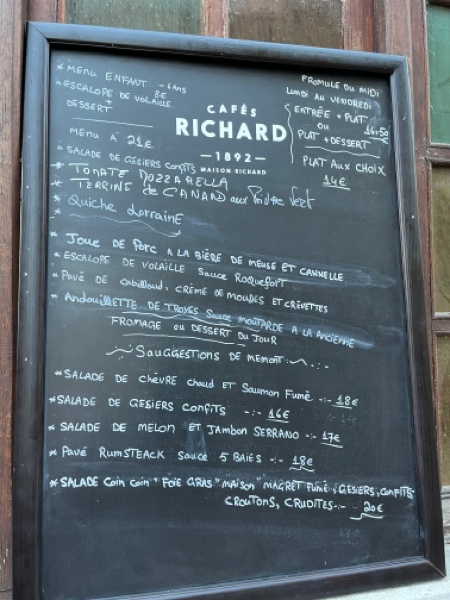 * MENU ENFANT - 6ANS
8€
* ESCALOPE DE VOLAILLE
DESSERT
MENU A 21€
CAFÉS
RICHARD
— 1892 —
MAISON RICHARD
FROMULE DU MIDI
LUNDI AU VENDREDI
ENTRÉE + PLAT
OU 16.50
PLAT + DESSERT
PLAT AUX CHOIX
14€
* SALADE DE GESIERS CONFITS
* TOMATE MOZZARELLA
* TERRINE de CANARD aux Poivre Vert
* Quiche Lorraine
* JOUE DE PORC A LA BIÈRE DE MEUSE ET CANNELLE
* ESCALOPE DE VOLAILLE Sauce Roquefort
* PAVÉ DE Cabillaud, CRÈME DE MOULES ET CREVETTES
* Andouillette DE TROYES Sauce MOUTARDE A LA Ancienne
FROMAGE ou DESSERT DU JOUR
SAUGGESTIONS DE MEMONT
* SALADE DE CHÈVRE chaud ET Saumon Fumé -:- 18€
* SALADE DE GESIERS CONFITS -:- 16€
* SALADE DE MELON ET Jambon SERRANO -:- 17€
* PAVÉ RUMSTEACK Sauce 5 BAIES -:- 18€
* SALADE Coin Coin " FOIE GRAS "MAISON" MAGRET FUMÉ, GESIERS, CONFITS
CROUTONS, CRUDITES -:- 20€